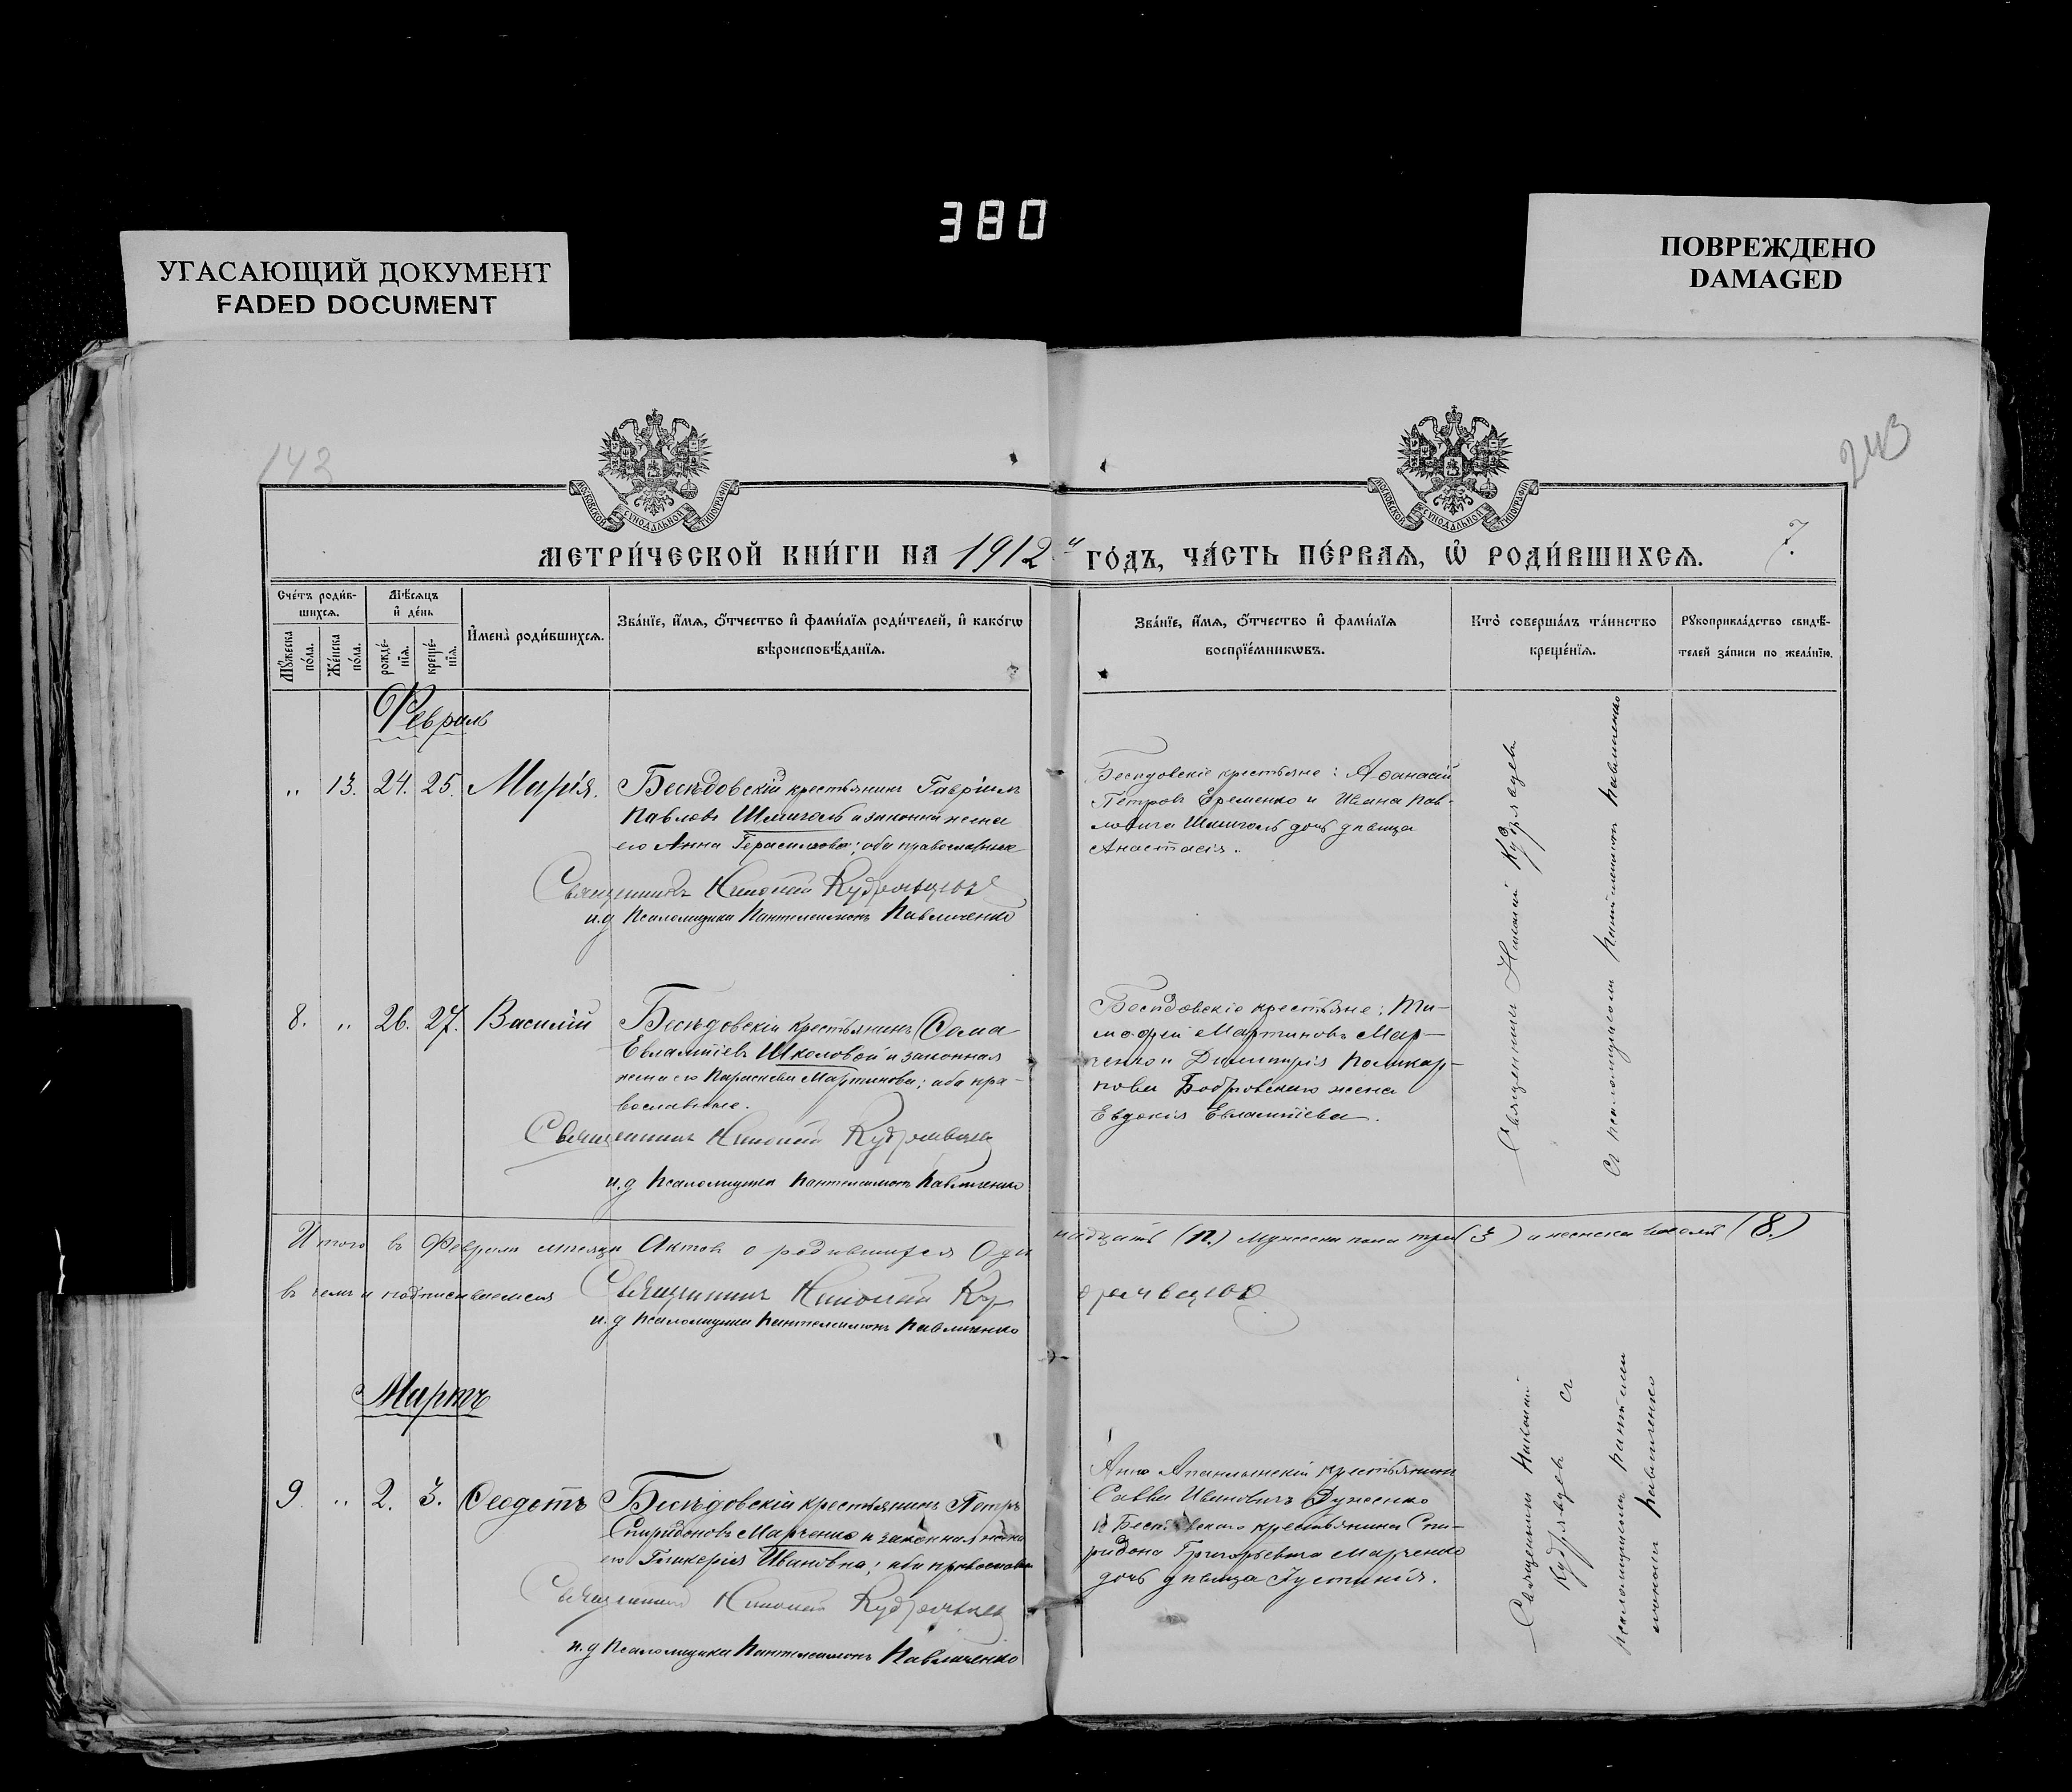 380
УГАСАЮЩИЙ ДОКУМЕНТ
FADED DOCUMENT
ПОВРЕЖДЕНО
DAMAGED
143
243
МОСКОВСКОЙ СѴНОДАЛЬНОЙ ТИПОГРАФІИ
МОСКОВСКОЙ СѴНОДАЛЬНОЙ ТИПОГРАФІИ
МЕТРИ́ЧЕСКОЙ КНИ́ГИ НА 1912 й ГО́ДЪ, ЧА́СТЬ ПЕ́РВАѦ, Ѡ҆ РОДИ́ВШИХСѦ.
7.
Сче́тъ роди́в-
шихсѧ.
Мѣ́сѧцъ
и҆ де́нь
Мꙋ́жеска
по́ла.
Же́нска
по́ла.
рожде́-
нїѧ.
креще́-
нїѧ.
И҆мена̀ роди́вшихсѧ.
Зва́нїе, и҆́мѧ, ѻ҆́тчество и҆ фамѝлїѧ роди́телей, и҆ како́гѡ
вѣроисповѣ́данїѧ.
Зва́нїе, и҆́мѧ, ѻ҆́тчество и҆ фами́лїѧ
воспрїе́мникѡвъ.
Кто̀ соверша́лъ та́инство
креще́нїѧ.
Рꙋкоприкла́дство свидѣ́-
телей за́писи по жела́нїю.
Февраль
" 13. 24. 25. Марія.
Бесѣдовскій крестьянинъ Гавріилъ
Павловъ Шмиголь и законная жена
его Анна Герасимова; оба православные
Священникъ Николай Кудрявцевъ
и.д Псаломщика Пантелеимонъ Павличенко
Бесѣдовскіе крестьяне: Аѳанасій
Петровъ Еременко и Ивана Пав-
ловича Шмиголь дочь дѣвица
Анастасія.
Священникъ Николай Кудрявцевъ
съ псаломщикомъ Пантелеимономъ Павличенко
8. " 26. 27. Василій
Бесѣдовскій крестьянинъ Ѳома
Евлампіевъ Школовой и законная
жена его Параскева Мартинова; оба пра-
вославные.
Священникъ Николай Кудрявцевъ
и.д Псаломщика Пантелеимонъ Павличенко
Бесѣдовскіе крестьяне: Ти-
моѳей Мартиновъ Мар-
ченко и Димитрія Поликар-
пова Бобровскаго жена
Евдокія Евлампіева.
Итого въ Февралѣ мѣсяцѣ Актовъ о родившихся Оди
надцать (11.) мужеска пола три (3) и женска восемь (8.)
въ чемъ и подписываемся Священникъ Николай Ку
дрявцевъ
и.д Псаломщика Пантелеимонъ Павличенко
Мартъ
9. " 2. 3. Ѳеодотъ
Бесѣдовскій крестьянинъ Петръ
Спиридоновъ Марченко и законная жена
его Гликерія Ивановна; оба православные
Священникъ Николай Кудрявцевъ
и.д Псаломщика Пантелеимонъ Павличенко
крестьянинъ
Савва Ивановичъ
и крестьянина Спи-
ридона Григорьевича Марченко
дочь дѣвица Іустинія.
Священникъ Николай
Кудрявцевъ съ
псаломщикомъ Пантелеи
мономъ Павличенко